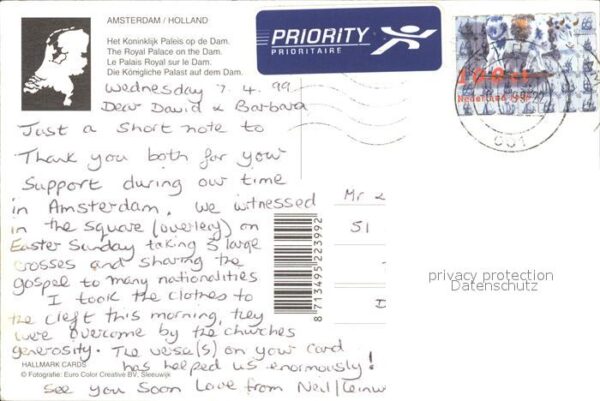 AMSTERDAM / HOLLAND
Het Koninklijk Paleis op de Dam.
The Royal Palace on the Dam.
Le Palais Royal sur le Dam.
Die Königliche Palast auf dem Dam.
PRIORITY
PRIORITAIRE
100 ct
Nederland
Wednesday 7.4.99
Dear David & Barbara
Just a short note to
Thank you both for your
Support during our time
in Amsterdam. We witnessed
in the square (overleaf) on
Easter Sunday taking 3 large
crosses and sharing the
gospel to many nationalities
I took the clothes to
the cleft this morning, they
were overcome by the churches
generosity. The verse(s) on your card
has helped us enormously!
See you soon Love from Neil
Mr &
51
D
8 713495 223992
privacy protection
Datenschutz
HALLMARK CARDS
© Fotografie: Euro Color Creative BV. Sleeuwijk